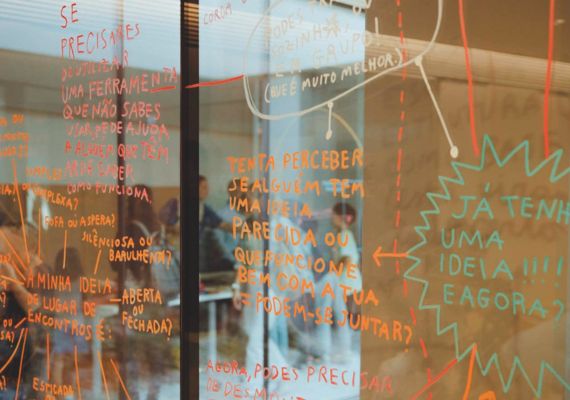 SE
PRECISARES
DE UTILIZAR
UMA FERRAMENTA
QUE NÃO SABES
USAR, PEDE AJUDA
A ALGUÉM QUE TEM
DE SABER
COMO FUNCIONA.
CORDA
PODES
SOZINHA,
EM GRUPO!
(QUE É MUITO MELHOR.)
TENTA PERCEBER
SE ALGUÉM TEM
UMA IDEIA
PARECIDA OU
QUE FUNCIONE
BEM COM A TUA
PODEM-SE JUNTAR?
JÁ TENH
UMA
IDEIA!!!!
E AGORA?
OU
FOFA OU ÁSPERA?
SILÊNCIOSA OU
BARULHENTA?
A MINHA IDEIA
DE LUGAR DE
ENCONTRO É:
ABERTA
OU
FECHADA?
ESTICADA
AGORA, PODES PRECISAR